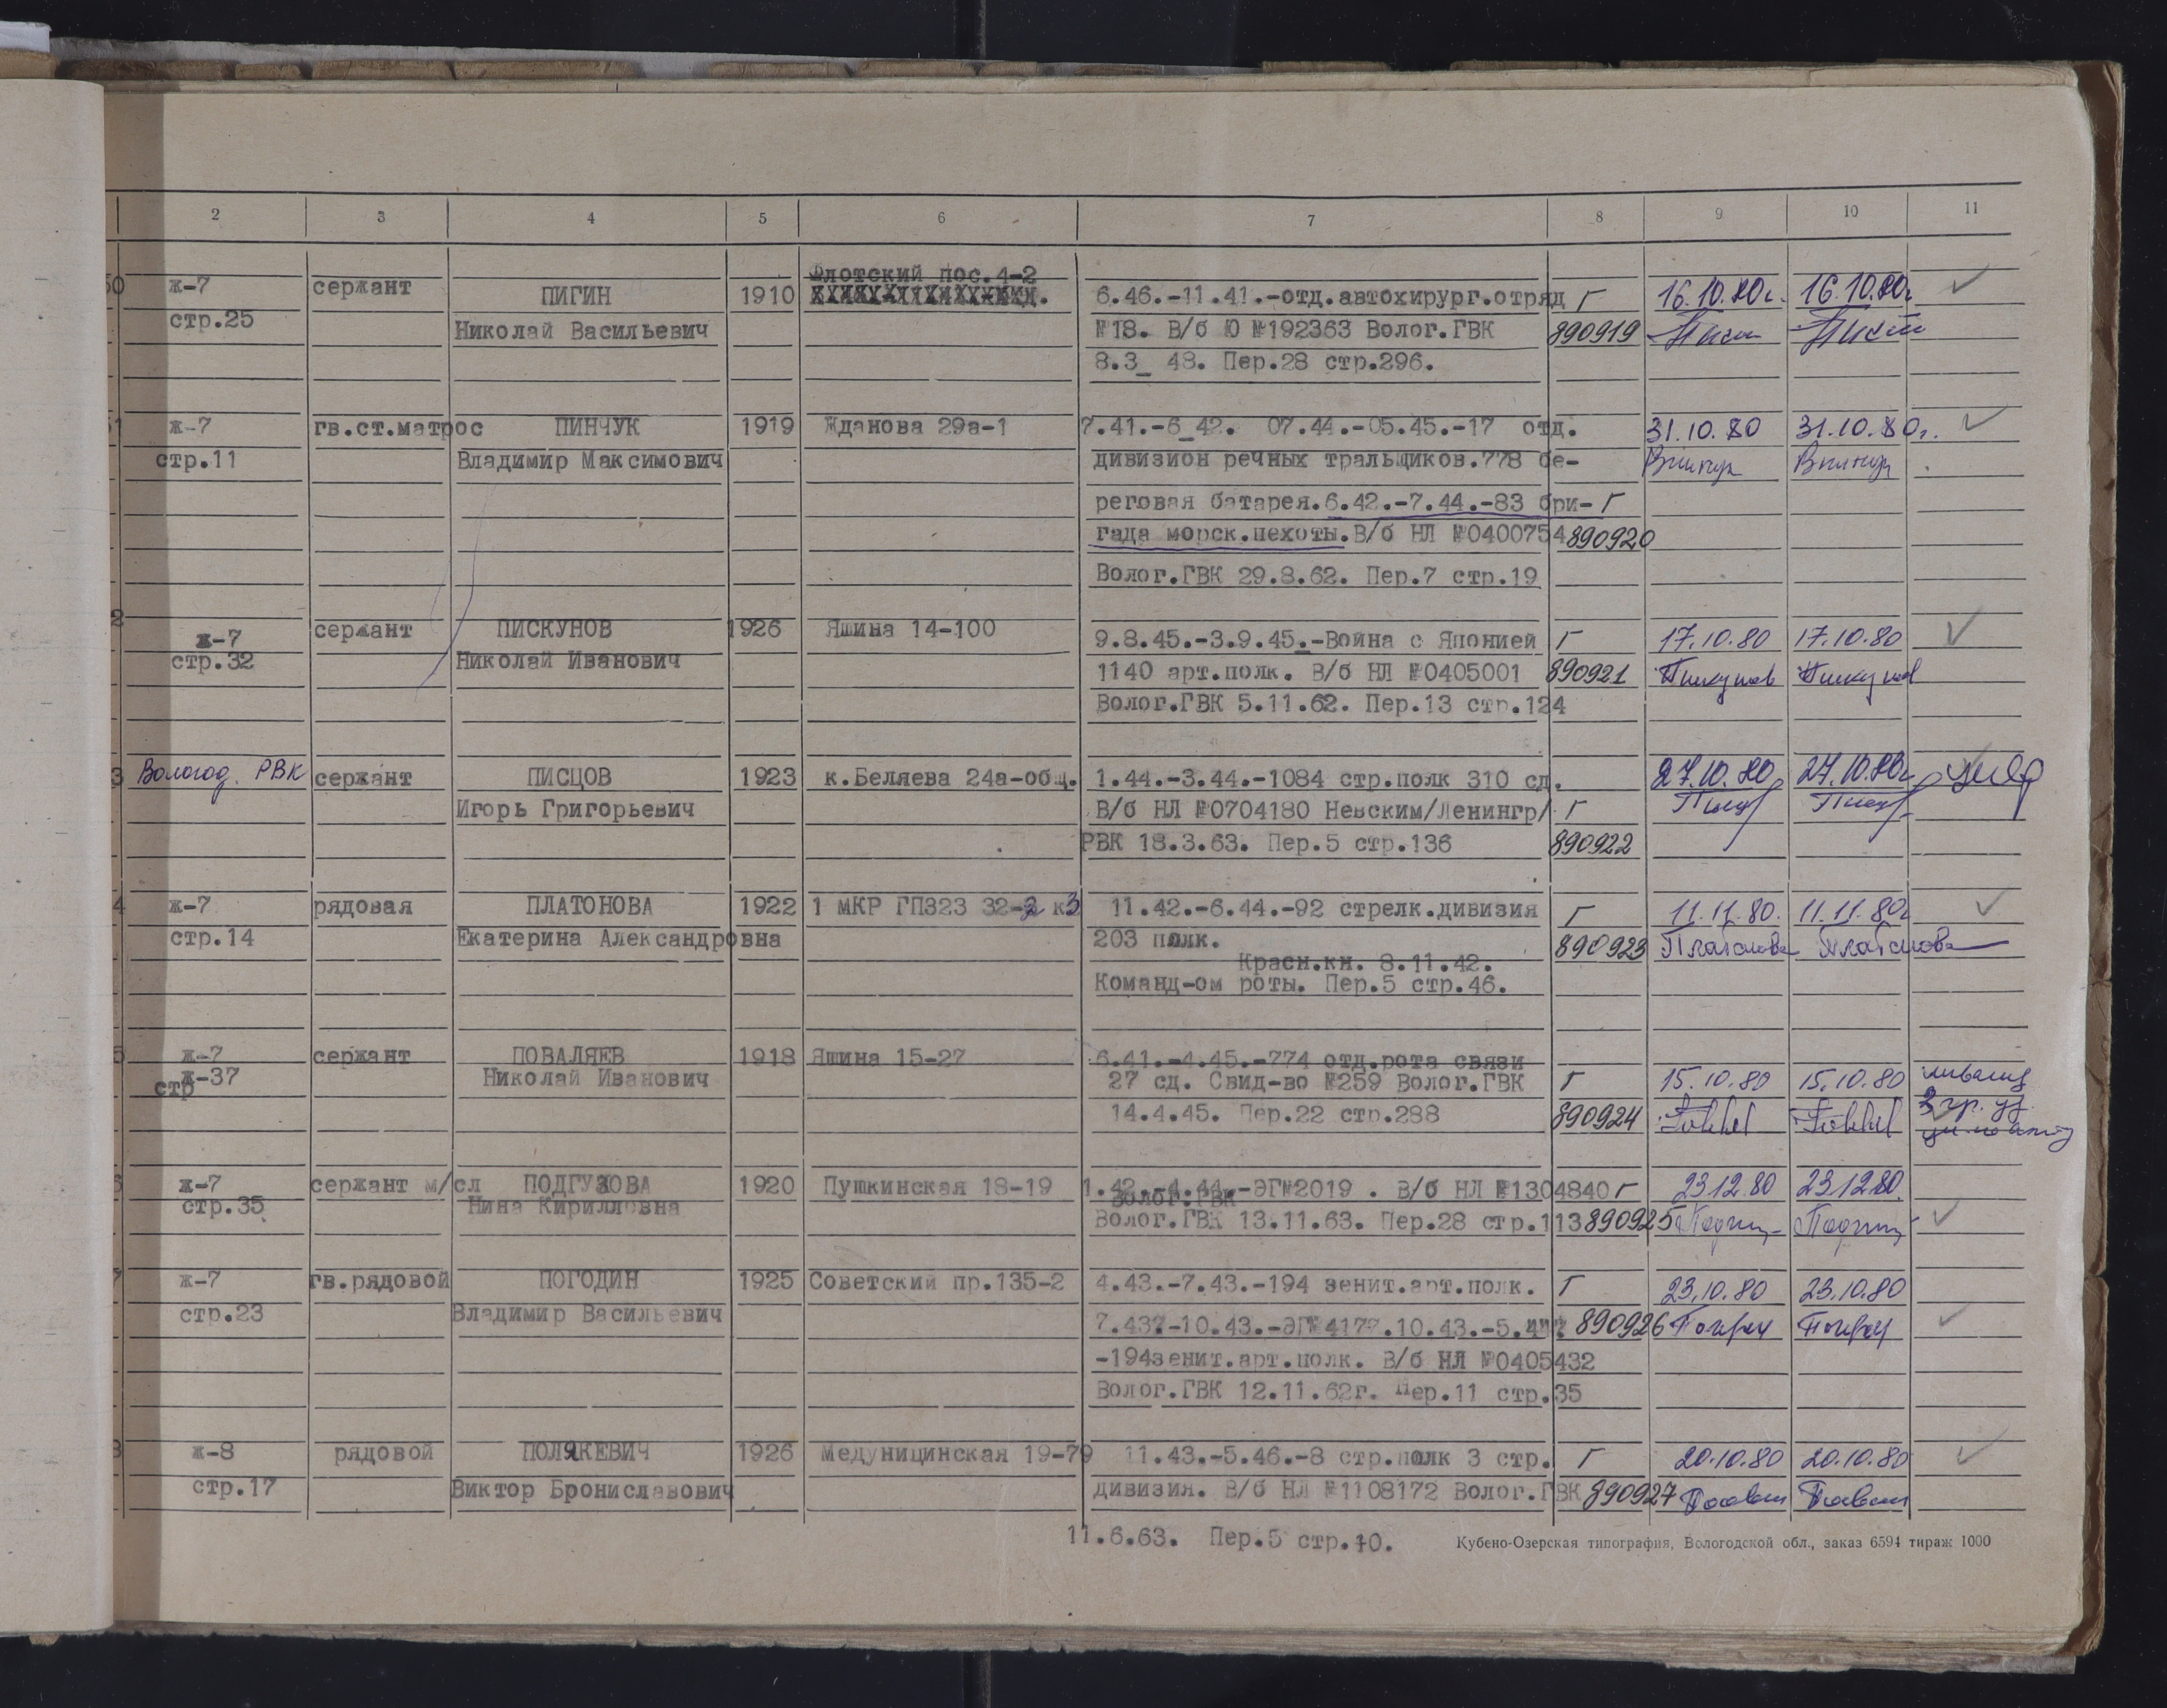 2 3 4 5 6 7 8 9 10 11
Флотский пос.4-2
0 ж-7 сержант ПИГИН 1910 6.46.-11.41.-отд.автохирург.отряд Г 16.10.80г. 16.10.80г
стр.25 Николай Васильевич №18. В/б Ю №192363 Волог.ГВК 890919
8.3_ 48. Пер.28 стр.296.
1 ж-7 гв.ст.матрос ПИНЧУК 1919 Жданова 29а-1 7.41.-6_42. 07.44.-05.45.-17 отд. 31.10.80 31.10.80г.
стр.11 Владимир Максимович дивизион речных тральщиков.778 бе-
реговая батарея.6.42.-7.44.-83 бри- Г
гада морск.пехоты.В/б НЛ №0400754 890920
Волог.ГВК 29.8.62. Пер.7 стр.19
2 ж-7 сержант ПИСКУНОВ 1926 Яшина 14-100 9.8.45.-3.9.45.-Война с Японией Г 17.10.80 17.10.80
стр.32 Николай Иванович 1140 арт.полк. В/б НЛ №0405001 890921 Пискунов Пискунов
Волог.ГВК 5.11.62. Пер.13 стр.124
3 Вологод. РВК сержант ПИСЦОВ 1923 к.Беляева 24а-общ. 1.44.-3.44.-1084 стр.полк 310 сд. 27.10.80 27.10.80г
Игорь Григорьевич В/б НЛ №0704180 Невским/Ленингр/ Г
РВК 18.3.63. Пер.5 стр.136 890922
4 ж-7 рядовая ПЛАТОНОВА 1922 1 МКР ГПЗ23 32- к3 11.42.-6.44.-92 стрелк.дивизия Г 11.11.80. 11.11.80г
стр.14 Екатерина Александровна 203 полк. 890923 Платонова Платонова
Красн.кн. 8.11.42.
Команд-ом роты. Пер.5 стр.46.
5 ж-7 сержант ПОВАЛЯЕВ 1918 Яшина 15-27 6.41.-4.45.-774 отд.рота связи
стр ж-37 Николай Иванович 27 сд. Свид-во №259 Волог.ГВК Г 15.10.80 15.10.80
14.4.45. Пер.22 стр.288 890924
6 ж-7 сержант м/сл ПОДГУЗОВА 1920 Пушкинская 18-19 1.42.-4.44.-ЭГ№2019 . В/б НЛ №1304840 Г 23.12.80 23.12.80.
Волог.ГВК
стр.35 Нина Кирилловна Волог.ГВК 13.11.63. Пер.28 стр.113 890925
7 ж-7 гв.рядовой ПОГОДИН 1925 Советский пр.135-2 4.43.-7.43.-194 зенит.арт.полк. Г 23.10.80 23.10.80
стр.23 Владимир Васильевич 7.43?-10.43.-ЭГ№4177.10.43.-5.4 890926
-194зенит.арт.полк. В/б НЛ №0405432
Волог.ГВК 12.11.62г. Пер.11 стр.35
8 ж-8 рядовой ПОЛЯКЕВИЧ 1926 Медуницинская 19-79 11.43.-5.46.-8 стр.полк 3 стр. Г 20.10.80 20.10.80
стр.17 Виктор Брониславович дивизия. В/б НЛ №1108172 Волог.ГВК 890927
11.6.63. Пер.5 стр.10.
Кубено-Озерская типография, Вологодской обл., заказ 6594 тираж 1000